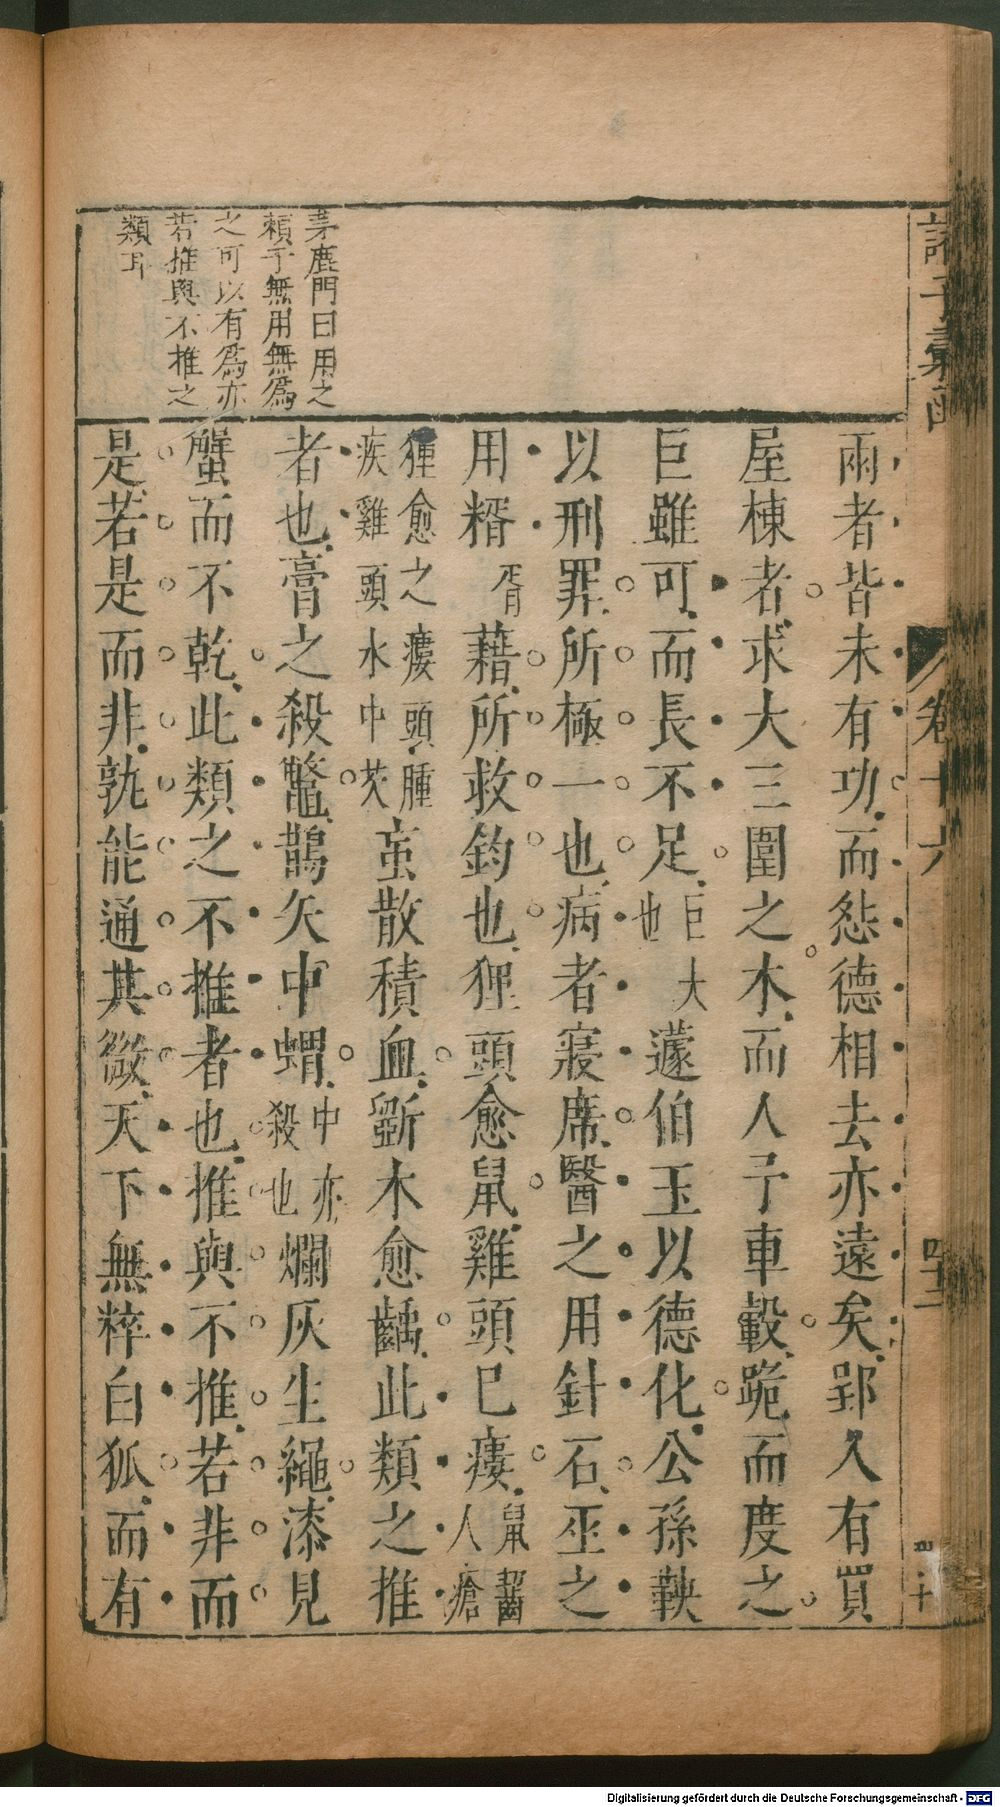 諸子彙函
卷十六
四十二
茅鹿門曰用之
賴于無用無為
之可以有為亦
若推與不推之
類耳
雨者皆未有功而怨德相去亦遠矣郢人有買
屋棟者求大三圍之木而人予車轂跪而度之
巨雖可而長不足巨大也蘧伯玉以德化公孫鞅
以刑罪所極一也病者寢席醫之用針石巫之
用糈胥藉所救鈞也狸頭愈鼠雞頭已瘻鼠齧人瘡
狸愈之瘻頭腫疾雞頭水中芡䖟散積血斲木愈齲此類之推
者也膏之殺鼈鵲矢中蝟中亦殺也爛灰生繩漆見
蟹而不乾此類之不推者也推與不推若非而
是若是而非孰能通其微天下無粹白狐而有
Digitalisierung gefördert durch die Deutsche Forschungsgemeinschaft - DFG